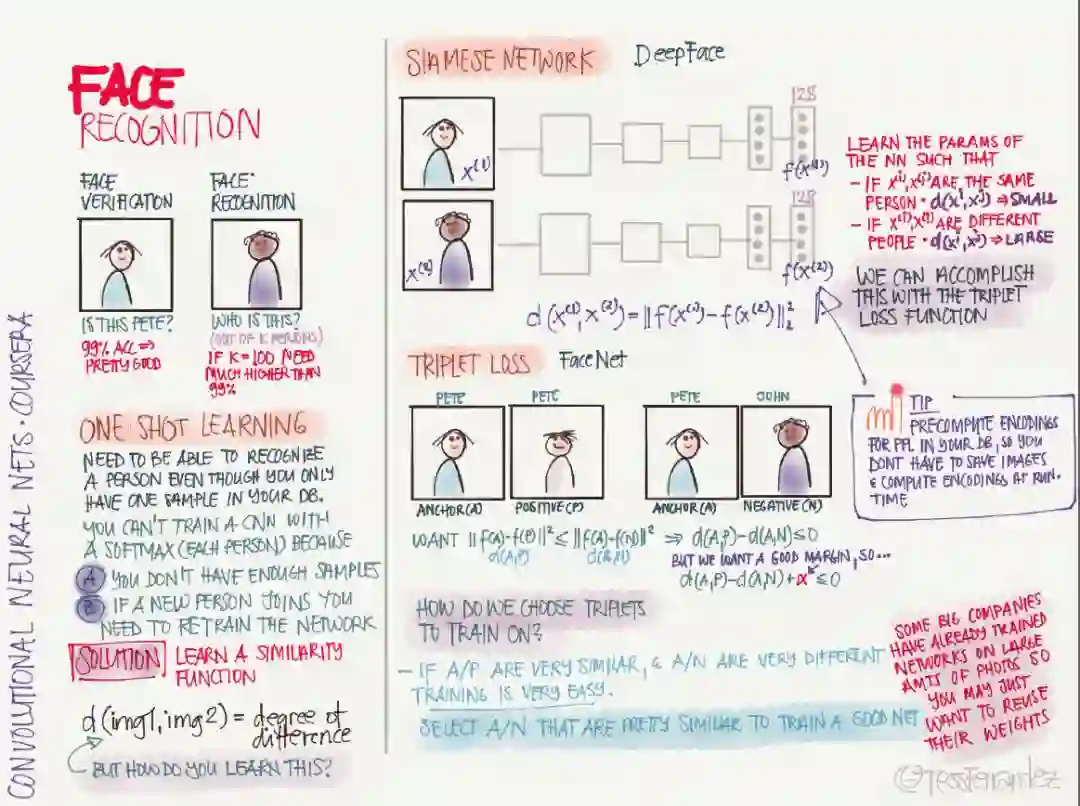 CONVOLUTIONAL NEURAL NETS · COURSERA
FACE
RECOGNITION
FACE
VERIFICATION
IS THIS PETE?
99% ACC ⇒
PRETTY GOOD
FACE
RECOGNITION
WHO IS THIS?
(OUT OF K PERSONS)
IF K=100 NEED
MUCH HIGHER THAN
99%
ONE SHOT LEARNING
NEED TO BE ABLE TO RECOGNIZE
A PERSON EVEN THOUGH YOU ONLY
HAVE ONE SAMPLE IN YOUR DB.
YOU CAN'T TRAIN A CNN WITH
A SOFTMAX (EACH PERSON) BECAUSE
A YOU DON'T HAVE ENOUGH SAMPLES
B IF A NEW PERSON JOINS YOU
NEED TO RETRAIN THE NETWORK
SOLUTION LEARN A SIMILARITY
FUNCTION
d(img1, img2) = degree of
difference
BUT HOW DO YOU LEARN THIS?
SIAMESE NETWORK DeepFace
x⁽¹⁾
128
f(x⁽¹⁾)
x⁽²⁾
128
f(x⁽²⁾)
d(x⁽¹⁾, x⁽²⁾) = ||f(x⁽¹⁾) - f(x⁽²⁾)||₂²
LEARN THE PARAMS OF
THE NN SUCH THAT
- IF x⁽ⁱ⁾, x⁽ʲ⁾ ARE THE SAME
PERSON · d(xⁱ, xʲ) ⇒ SMALL
- IF x⁽ⁱ⁾, x⁽ʲ⁾ ARE DIFFERENT
PEOPLE · d(xⁱ, xʲ) ⇒ LARGE
WE CAN ACCOMPLISH
THIS WITH THE TRIPLET
LOSS FUNCTION
TRIPLET LOSS FaceNet
PETE PETE PETE JOHN
ANCHOR (A) POSITIVE (P) ANCHOR (A) NEGATIVE (N)
WANT ||f(A)-f(P)||² ≤ ||f(A)-f(N)||² ⇒ d(A,P)-d(A,N) ≤ 0
d(A,P) d(A,N)
BUT WE WANT A GOOD MARGIN, SO...
d(A,P)-d(A,N)+α ≤ 0
TIP
PRECOMPUTE ENCODINGS
FOR PPL IN YOUR DB, SO YOU
DONT HAVE TO SAVE IMAGES
& COMPUTE ENCODINGS AT RUN-
TIME
HOW DO WE CHOOSE TRIPLETS
TO TRAIN ON?
- IF A/P ARE VERY SIMILAR, & A/N ARE VERY DIFFERENT
TRAINING IS VERY EASY.
SELECT A/N THAT ARE PRETTY SIMILAR TO TRAIN A GOOD NET
SOME BIG COMPANIES
HAVE ALREADY TRAINED
NETWORKS ON LARGE
AMTS OF PHOTOS SO
YOU MAY JUST
WANT TO REUSE
THEIR WEIGHTS
@TessFernandez